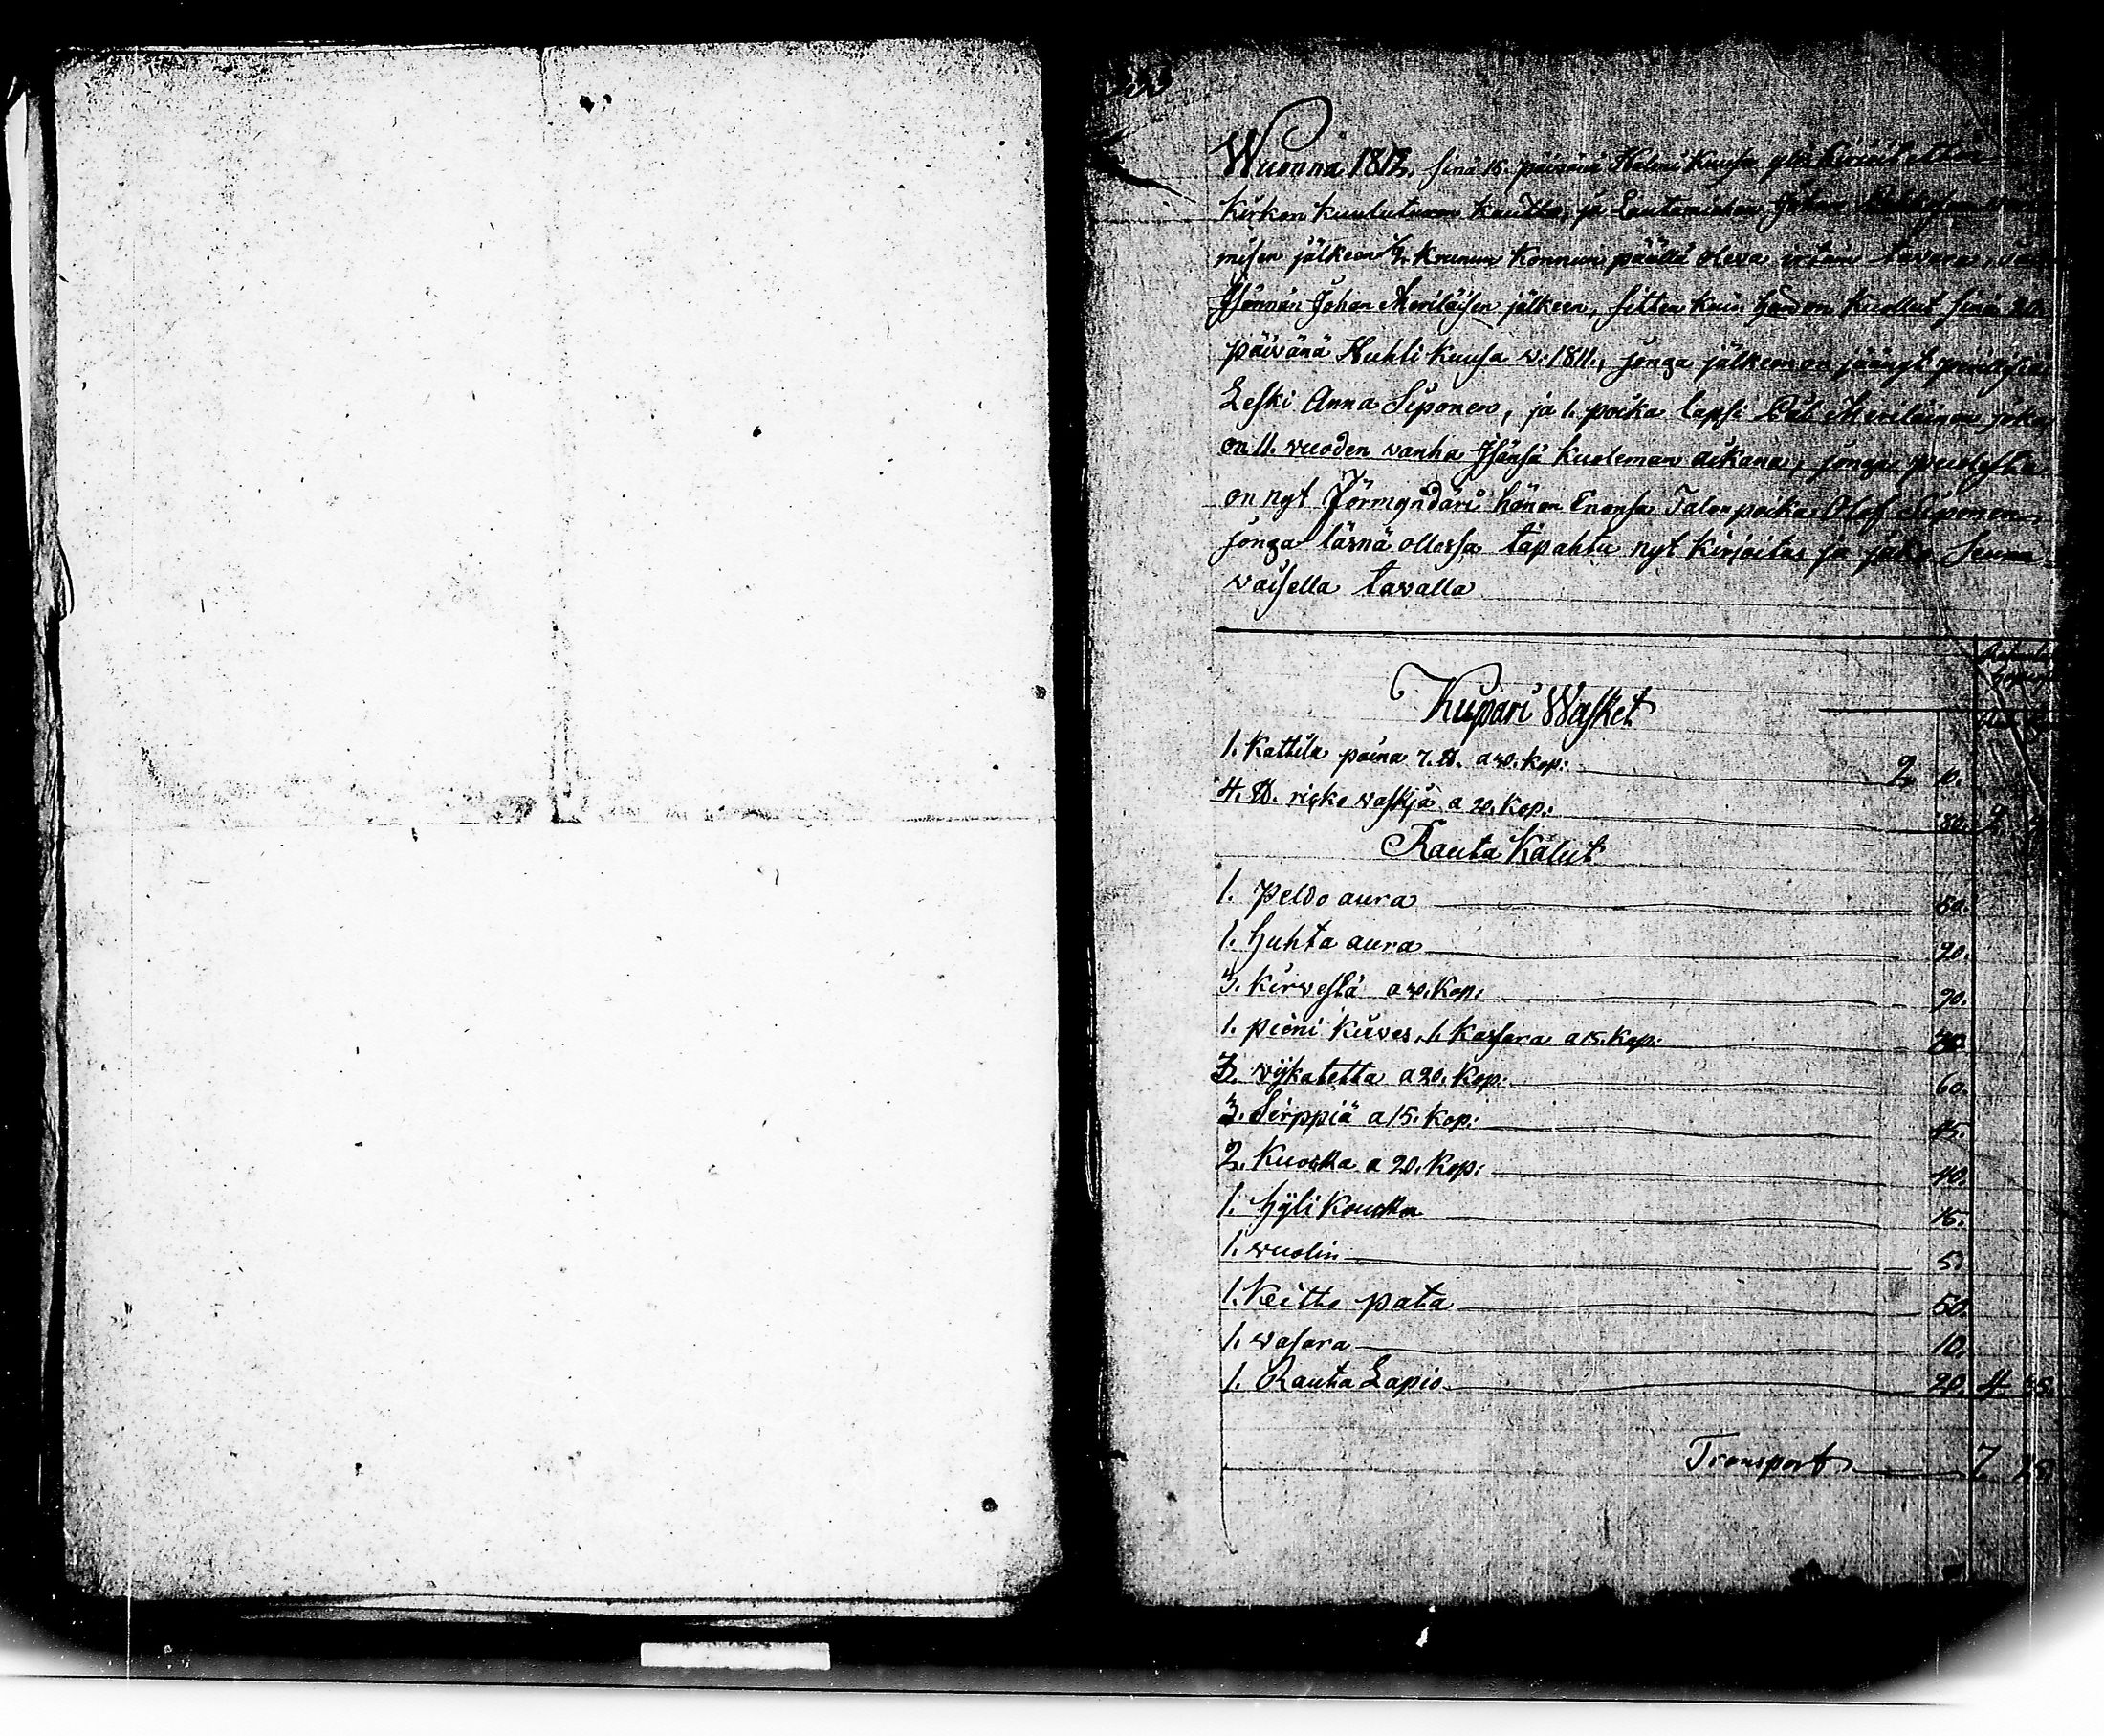 Wuonna 1812, sinä 15. päivänä Helmi Kuusa ylös kirjoitettin
Kirkon kuulutuxen kautta, ja Lautamiehen Johan
misen jälkeen Krunun Konnun päällä olewa irtain tavara,
Isännän Johan Meriläisen jälkeen, sitten kuin hän on kuollut sinä 20.
päiwänä Huhti kuusa w: 1811., jonga jälkeen on jäänyt
Leski Anna Siponen, ja 1. poika lapsi Pål Meriläinen joka
on 11. wuoden wanha Isänsä kuoleman aikana, jonga puolesta
on nyt Förmyndäri hänen Enonsa Talonpoika Olof Siponen,
jonga läsnä ollessa tapahtu nyt kirjoitus ja jako Seura=
waisella tawalla
Kupari Wasket
1. Kattila paina 7. ℔. a 30. kop: 2. 10.
4. ℔. ricko waskja a 20. Kop: 80. 2
Rauta Kalut
1. peldo aura 50.
1. huhta aura 20.
3. kirwestä a 30. Kop: 90.
1. pieni kirves, 1. kassara a 15. Kop: 30.
3. wijkatetta a 20. Kop: 60.
3. Sirppiä a 15. Kop: 45.
2. Kuokka a 20. Kop: 40.
1. hyli koukku 15.
1. wuolin 5.
1. Keitto pata 50.
1. wasara 10.
1. Rauta Lapio 20. 4 35.
Transport 7